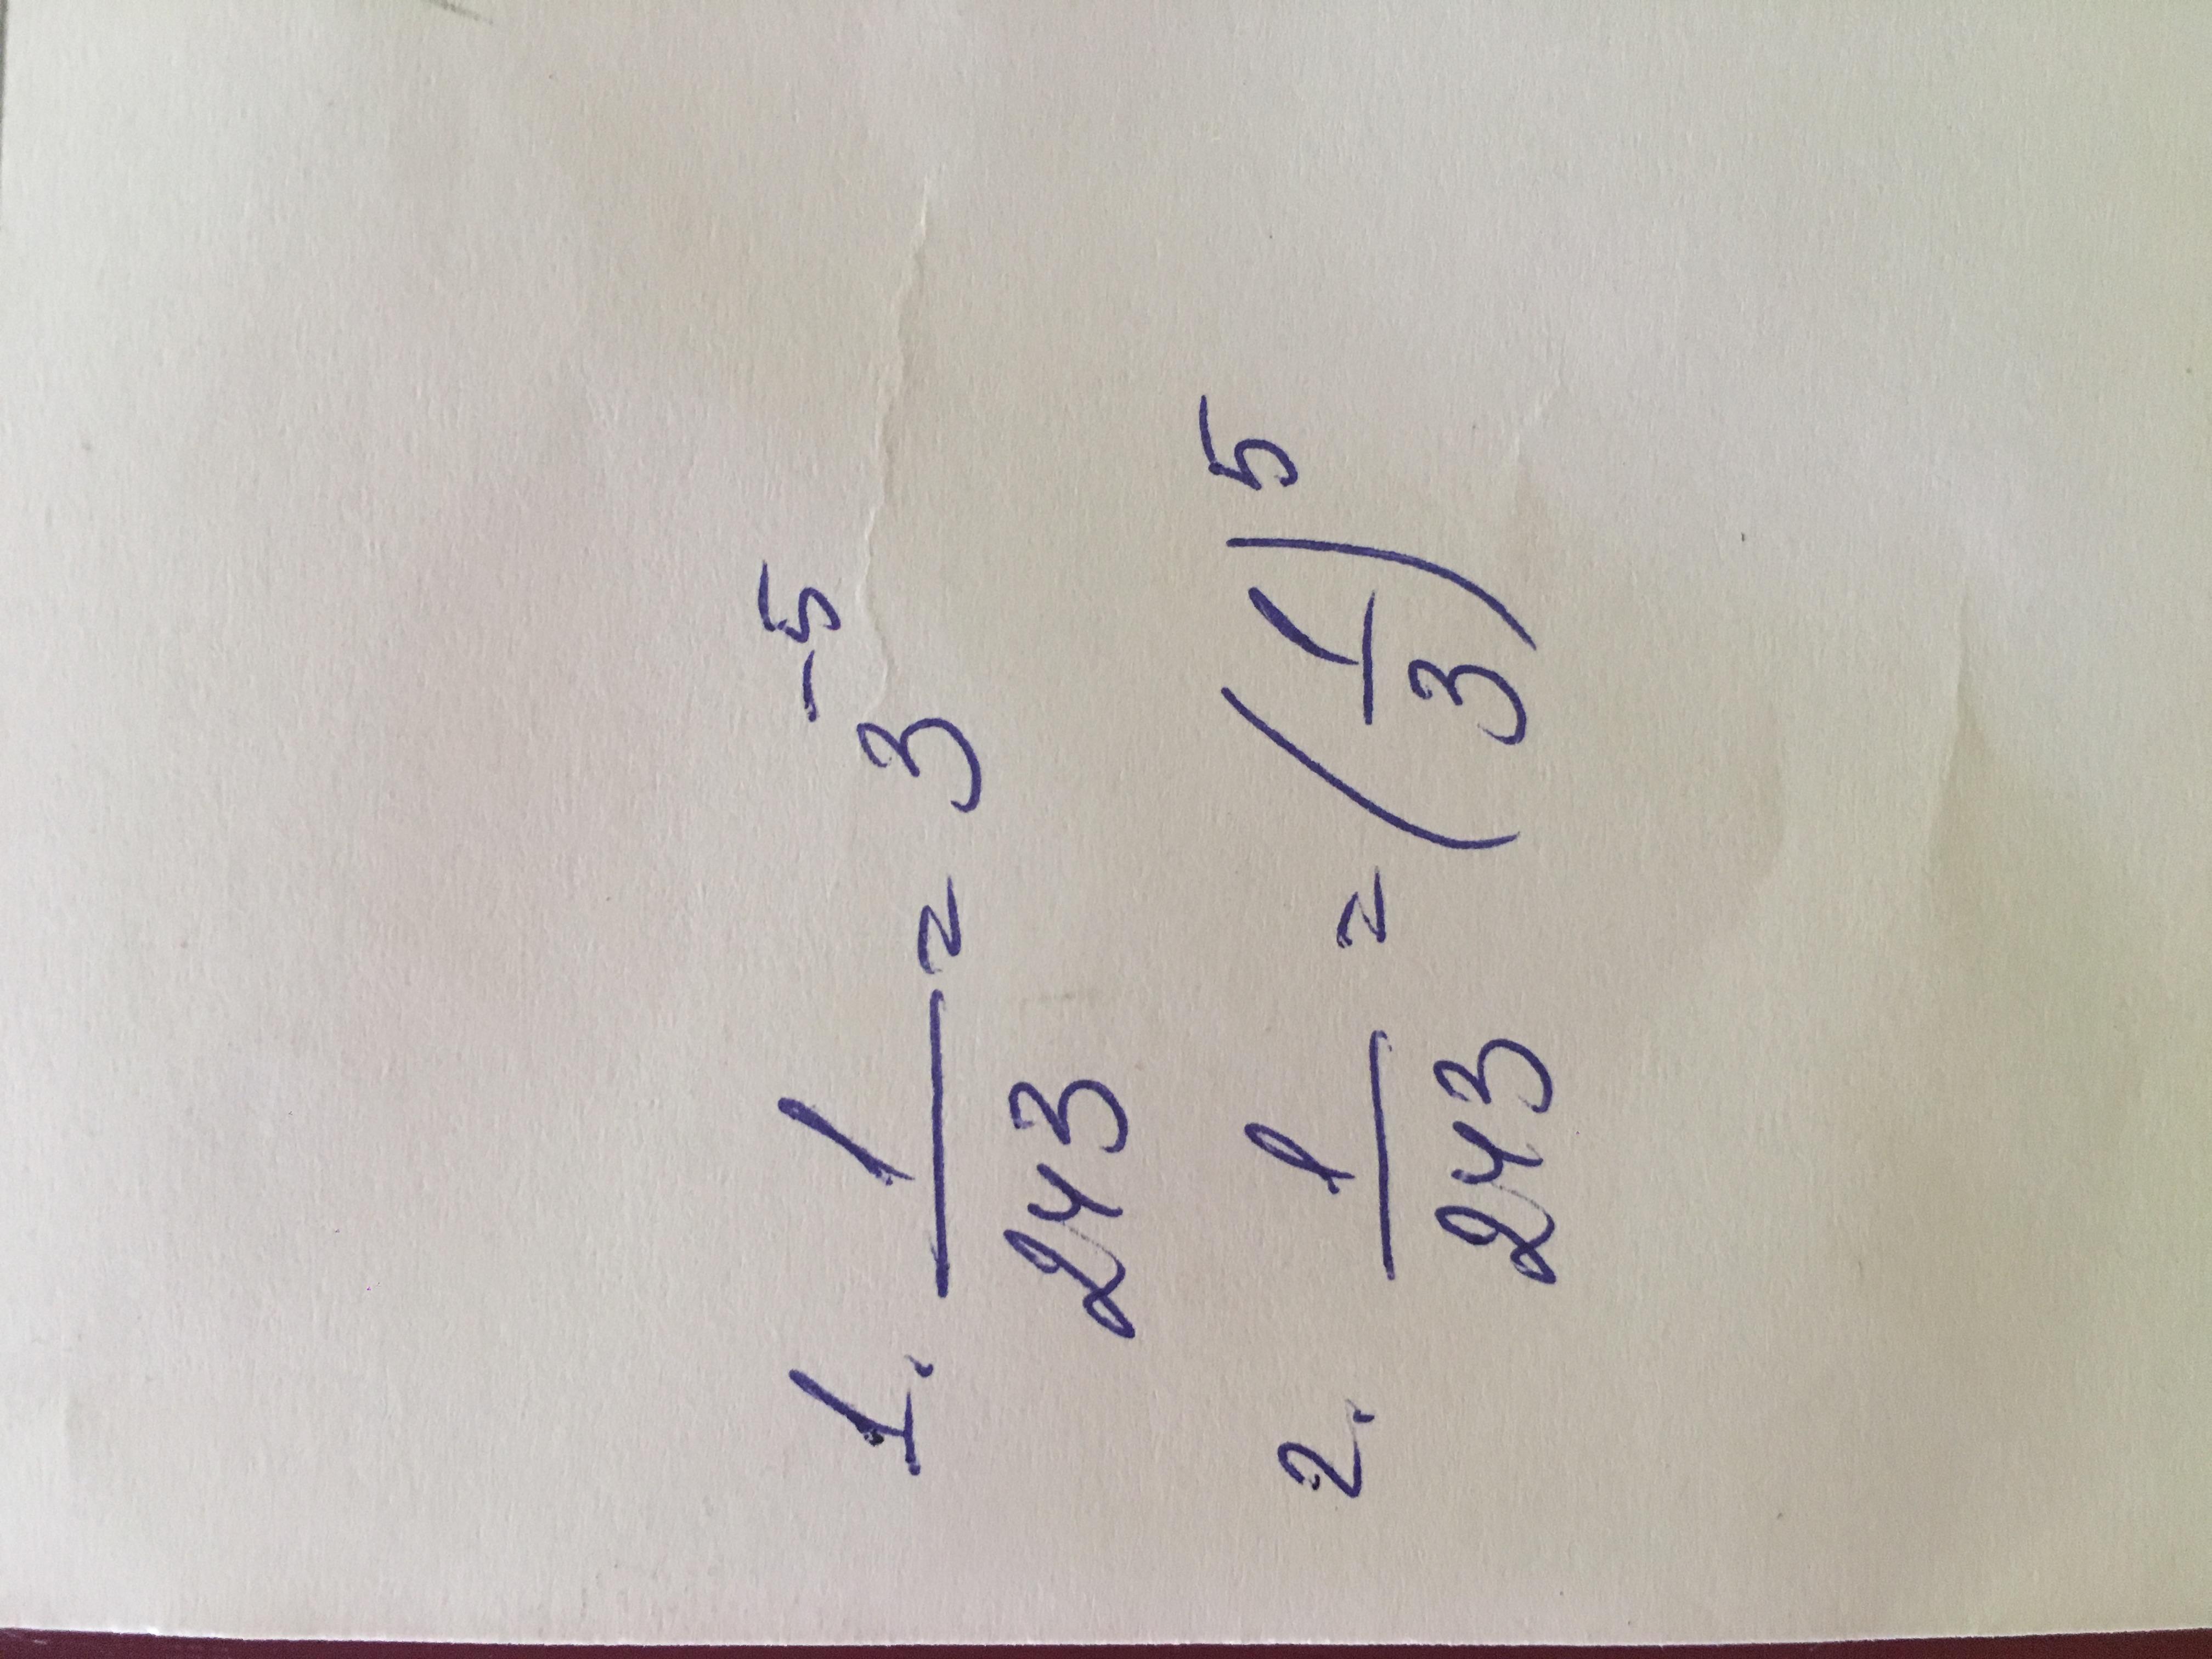 1. 1/243 = 3^-5
2. 1/243 = (1/3)^5